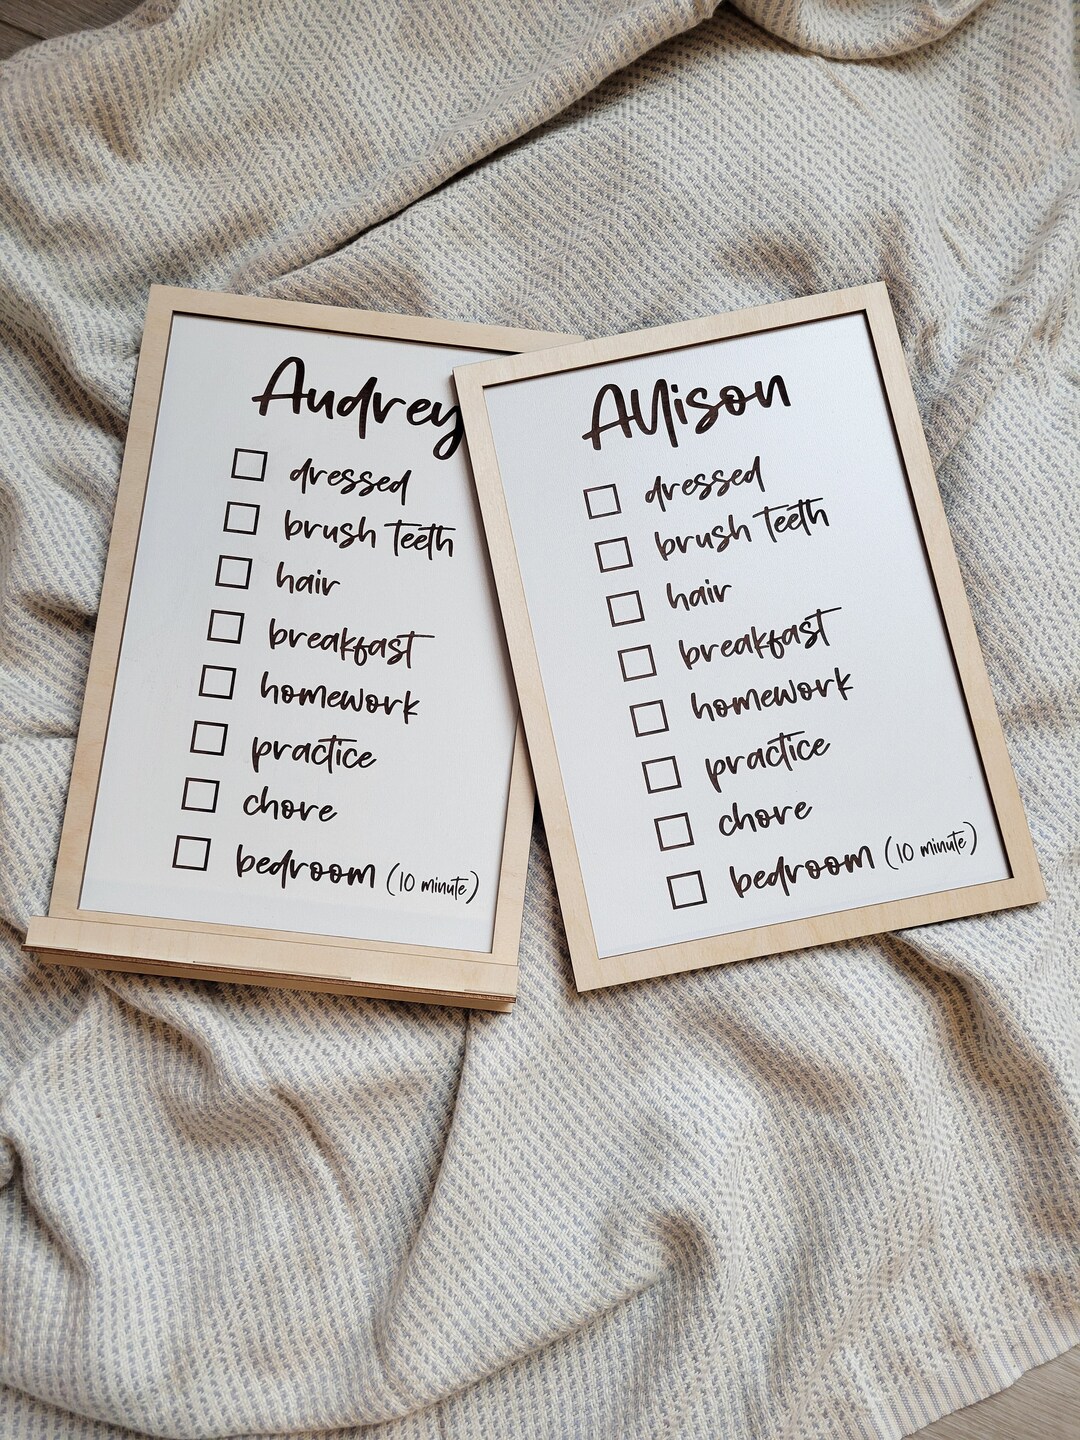 Audrey
dressed
brush teeth
hair
breakfast
homework
practice
chore
bedroom (10 minute)
Allison
dressed
brush teeth
hair
breakfast
homework
practice
chore
bedroom (10 minute)